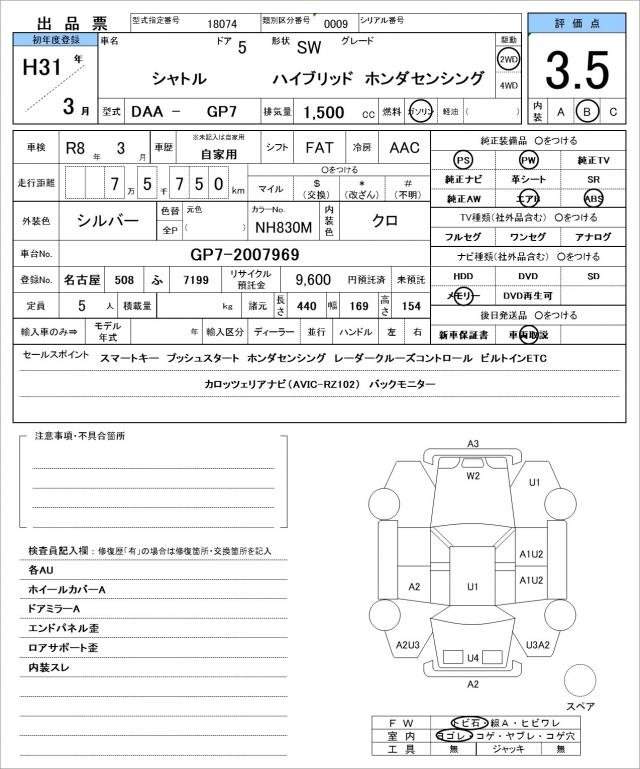 出品票 型式指定番号 18074 類別区分番号 0009 シリアル番号
評価点
初年度登録 車名 ドア 5 形状 SW グレード 駆動
H31年 シャトル ハイブリッド ホンダセンシング 2WD 3.5
3月 4WD
型式 DAA － GP7 排気量 1,500 cc 燃料 ガソリン 軽油 ( ) 内装 A B C
車検 R8年 3月 車歴 ※未記入は自家用 自家用 シフト FAT 冷房 AAC
純正装備品 〇をつける
PS PW 純正TV
走行距離 7万 5千 7 5 0 km 〇をつける
マイル $(交換) *(改ざん) #(不明)
純正ナビ 革シート SR
純正AW エアB ABS
外装色 シルバー 色替 元色 全P ( ) カラーNo. NH830M 内装色 クロ
TV種類(社外品含む) 〇をつける
フルセグ ワンセグ アナログ
車台No. GP7-2007969
ナビ種類(社外品含む) 〇をつける
登録No. 名古屋 508 ふ 7199 リサイクル預託金 9,600 円預託済 未預託
HDD DVD SD
定員 5 人 積載量 kg 諸元 長さ 440 幅 169 高さ 154
メモリー DVD再生可
後日発送品 〇をつける
輸入車のみ⇒ モデル年式 年 輸入区分 ディーラー 並行 ハンドル 左 右
新車保証書 車両取説
セールスポイント スマートキー プッシュスタート ホンダセンシング レーダークルーズコントロール ビルトインETC
カロッツェリアナビ(AVIC-RZ102) バックモニター
注意事項・不具合箇所
検査員記入欄：修復歴「有」の場合は修復箇所・交換箇所を記入
各AU
ホイールカバーA
ドアミラーA
エンドパネル歪
ロアサポート歪
内装スレ
A3
W2
U1
A1U2
A2 U1 A1U2
A2U3 U3A2
U4
A2
スペア
FW トビ石・線A・ヒビワレ
室内 ヨゴレ・コゲ・ヤブレ・コゲ穴
工具 無 ジャッキ 無